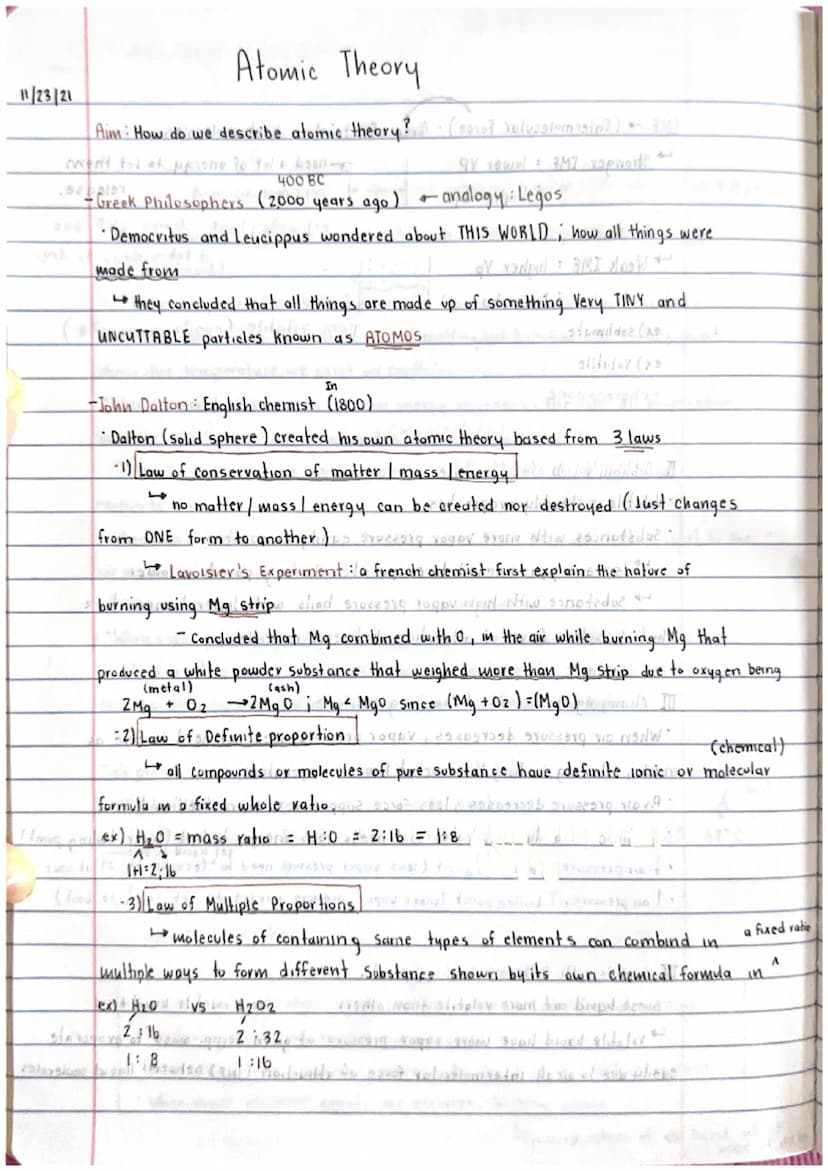 Atomic Theory
11/23/21
Aim: How do we describe atomic theory?
400 BC
- Greek Philosophers (2000 years ago) ← analogy: Legos
· Democritus and Leucippus wondered about THIS WORLD ; how all things were
made from
↳ they concluded that all things are made up of something Very TINY and
UNCUTTABLE particles known as ATOMOS
In
- John Dalton: English chemist (1800)
· Dalton (solid sphere) created his own atomic theory based from 3 laws
·1) Law of conservation of matter / mass / energy
↳ no matter / mass / energy can be created nor destroyed (Just changes
from ONE form to another)
↳ Lavoisier's Experiment: a french chemist first explain the nature of
burning using Mg strip
- Concluded that Mg combined with O, in the air while burning Mg that
produced a white powder substance that weighed more than Mg strip due to oxygen being
(metal) (ash)
2Mg + O2 → 2MgO ; Mg < MgO since (Mg + O2) = (MgO)
·2) Law of Definite proportion
(chemical)
↳ all compounds or molecules of pure substance have definite ionic or molecular
formula in a fixed whole ratio.
ex) H2O = mass ratio = H:O = 2:16 = 1:8
1H=2:16
·3) Law of Multiple Proportions
↳ molecules of containing same types of elements can combind in a fixed ratio
multiple ways to form different substance shown by its own chemical formula in ^
ex) H2O vs H2O2
2:16 2:32
1:8 1:16